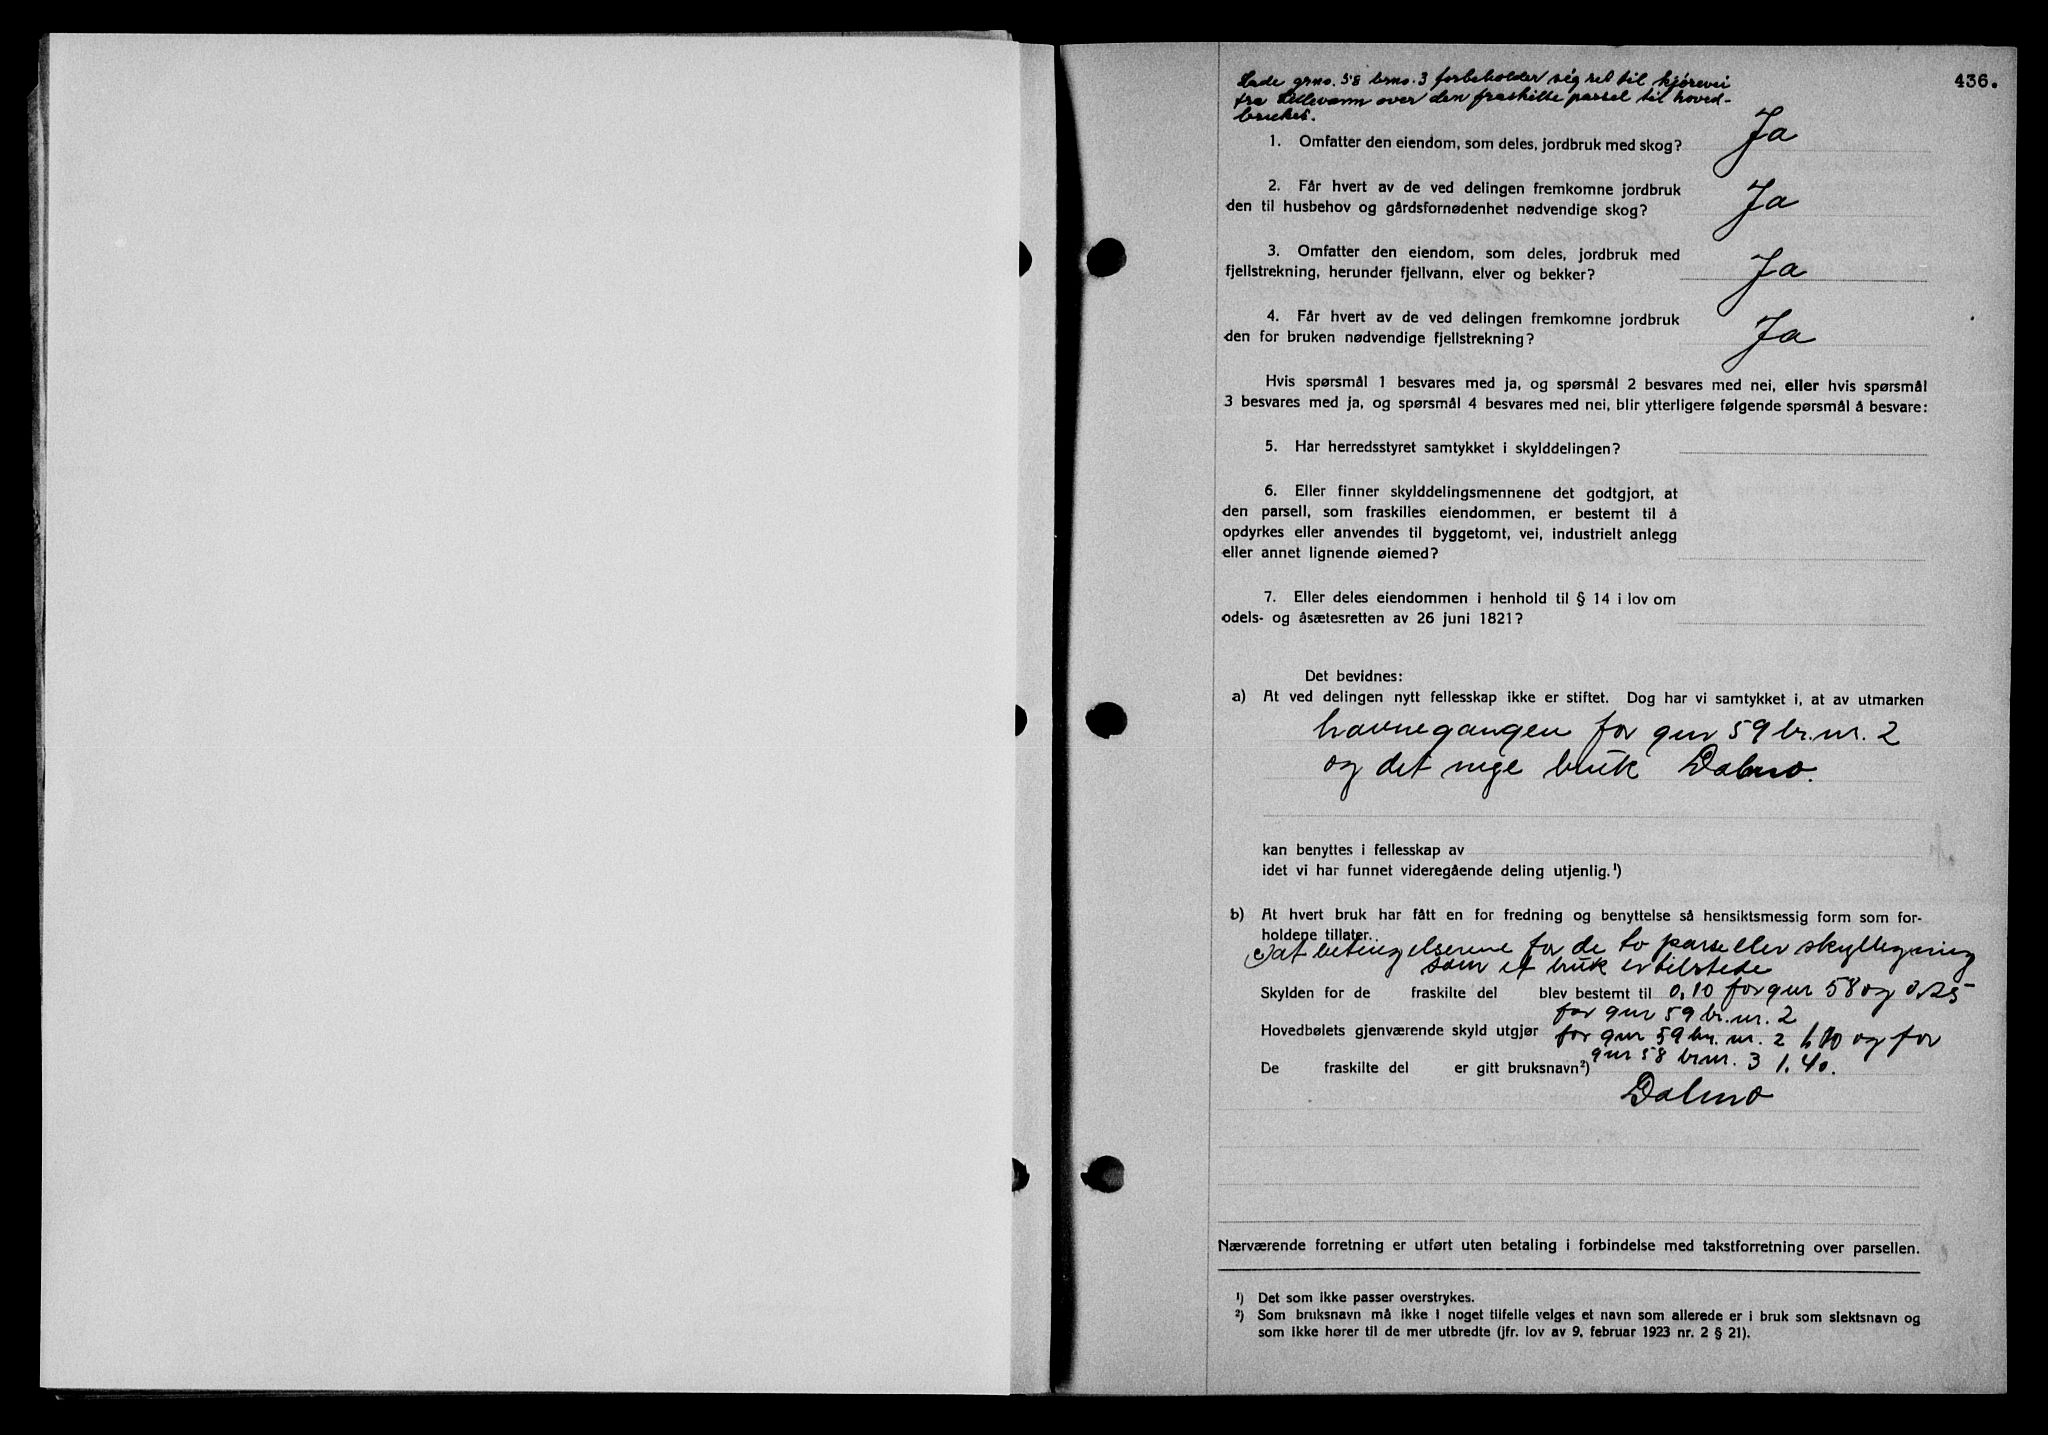 436.
Lade grno. 58 brno. 3 forbeholder sig ret til kjørevei
fra Lillevann over den fraskilte parsel til hoved-
bruket.
1. Omfatter den eiendom, som deles, jordbruk med skog? Ja
2. Får hvert av de ved delingen fremkomne jordbruk
den til husbehov og gårdsfornødenhet nødvendige skog? Ja
3. Omfatter den eiendom, som deles, jordbruk med
fjellstrekning, herunder fjellvann, elver og bekker? Ja
4. Får hvert av de ved delingen fremkomne jordbruk
den for bruken nødvendige fjellstrekning? Ja
Hvis spørsmål 1 besvares med ja, og spørsmål 2 besvares med nei, eller hvis spørsmål
3 besvares med ja, og spørsmål 4 besvares med nei, blir ytterligere følgende spørsmål å besvare:
5. Har herredsstyret samtykket i skylddelingen?
6. Eller finner skylddelingsmennene det godtgjort, at
den parsell, som fraskilles eiendommen, er bestemt til å
opdyrkes eller anvendes til byggetomt, vei, industrielt anlegg
eller annet lignende øiemed?
7. Eller deles eiendommen i henhold til § 14 i lov om
odels- og åsætesretten av 26 juni 1821?
Det bevidnes:
a) At ved delingen nytt fellesskap ikke er stiftet. Dog har vi samtykket i, at av utmarken
havnegangen for gnr 59 br.nr. 2
og det nye bruk Dalmo.
kan benyttes i fellesskap av
idet vi har funnet videregående deling utjenlig.¹)
b) At hvert bruk har fått en for fredning og benyttelse så hensiktsmessig form som for-
holdene tillater.
c) at betingelserne for de to parseller skyllegning
som et bruk er tilstede
Skylden for de fraskilte del blev bestemt til 0,10 for gnr 58 og 0.25
for gnr 59 br.nr. 2
Hovedbølets gjenværende skyld utgjør for gnr 59 br. nr. 2 og for
gnr 58 br.nr. 3 1.40.
De fraskilte del er gitt bruksnavn²)
Dalmo
Nærværende forretning er utført uten betaling i forbindelse med takstforretning over parsellen.
¹) Det som ikke passer overstrykes.
²) Som bruksnavn må ikke i noget tilfelle velges et navn som allerede er i bruk som slektsnavn og
som ikke hører til de mer utbredte (jfr. lov av 9. februar 1923 nr. 2 § 21).